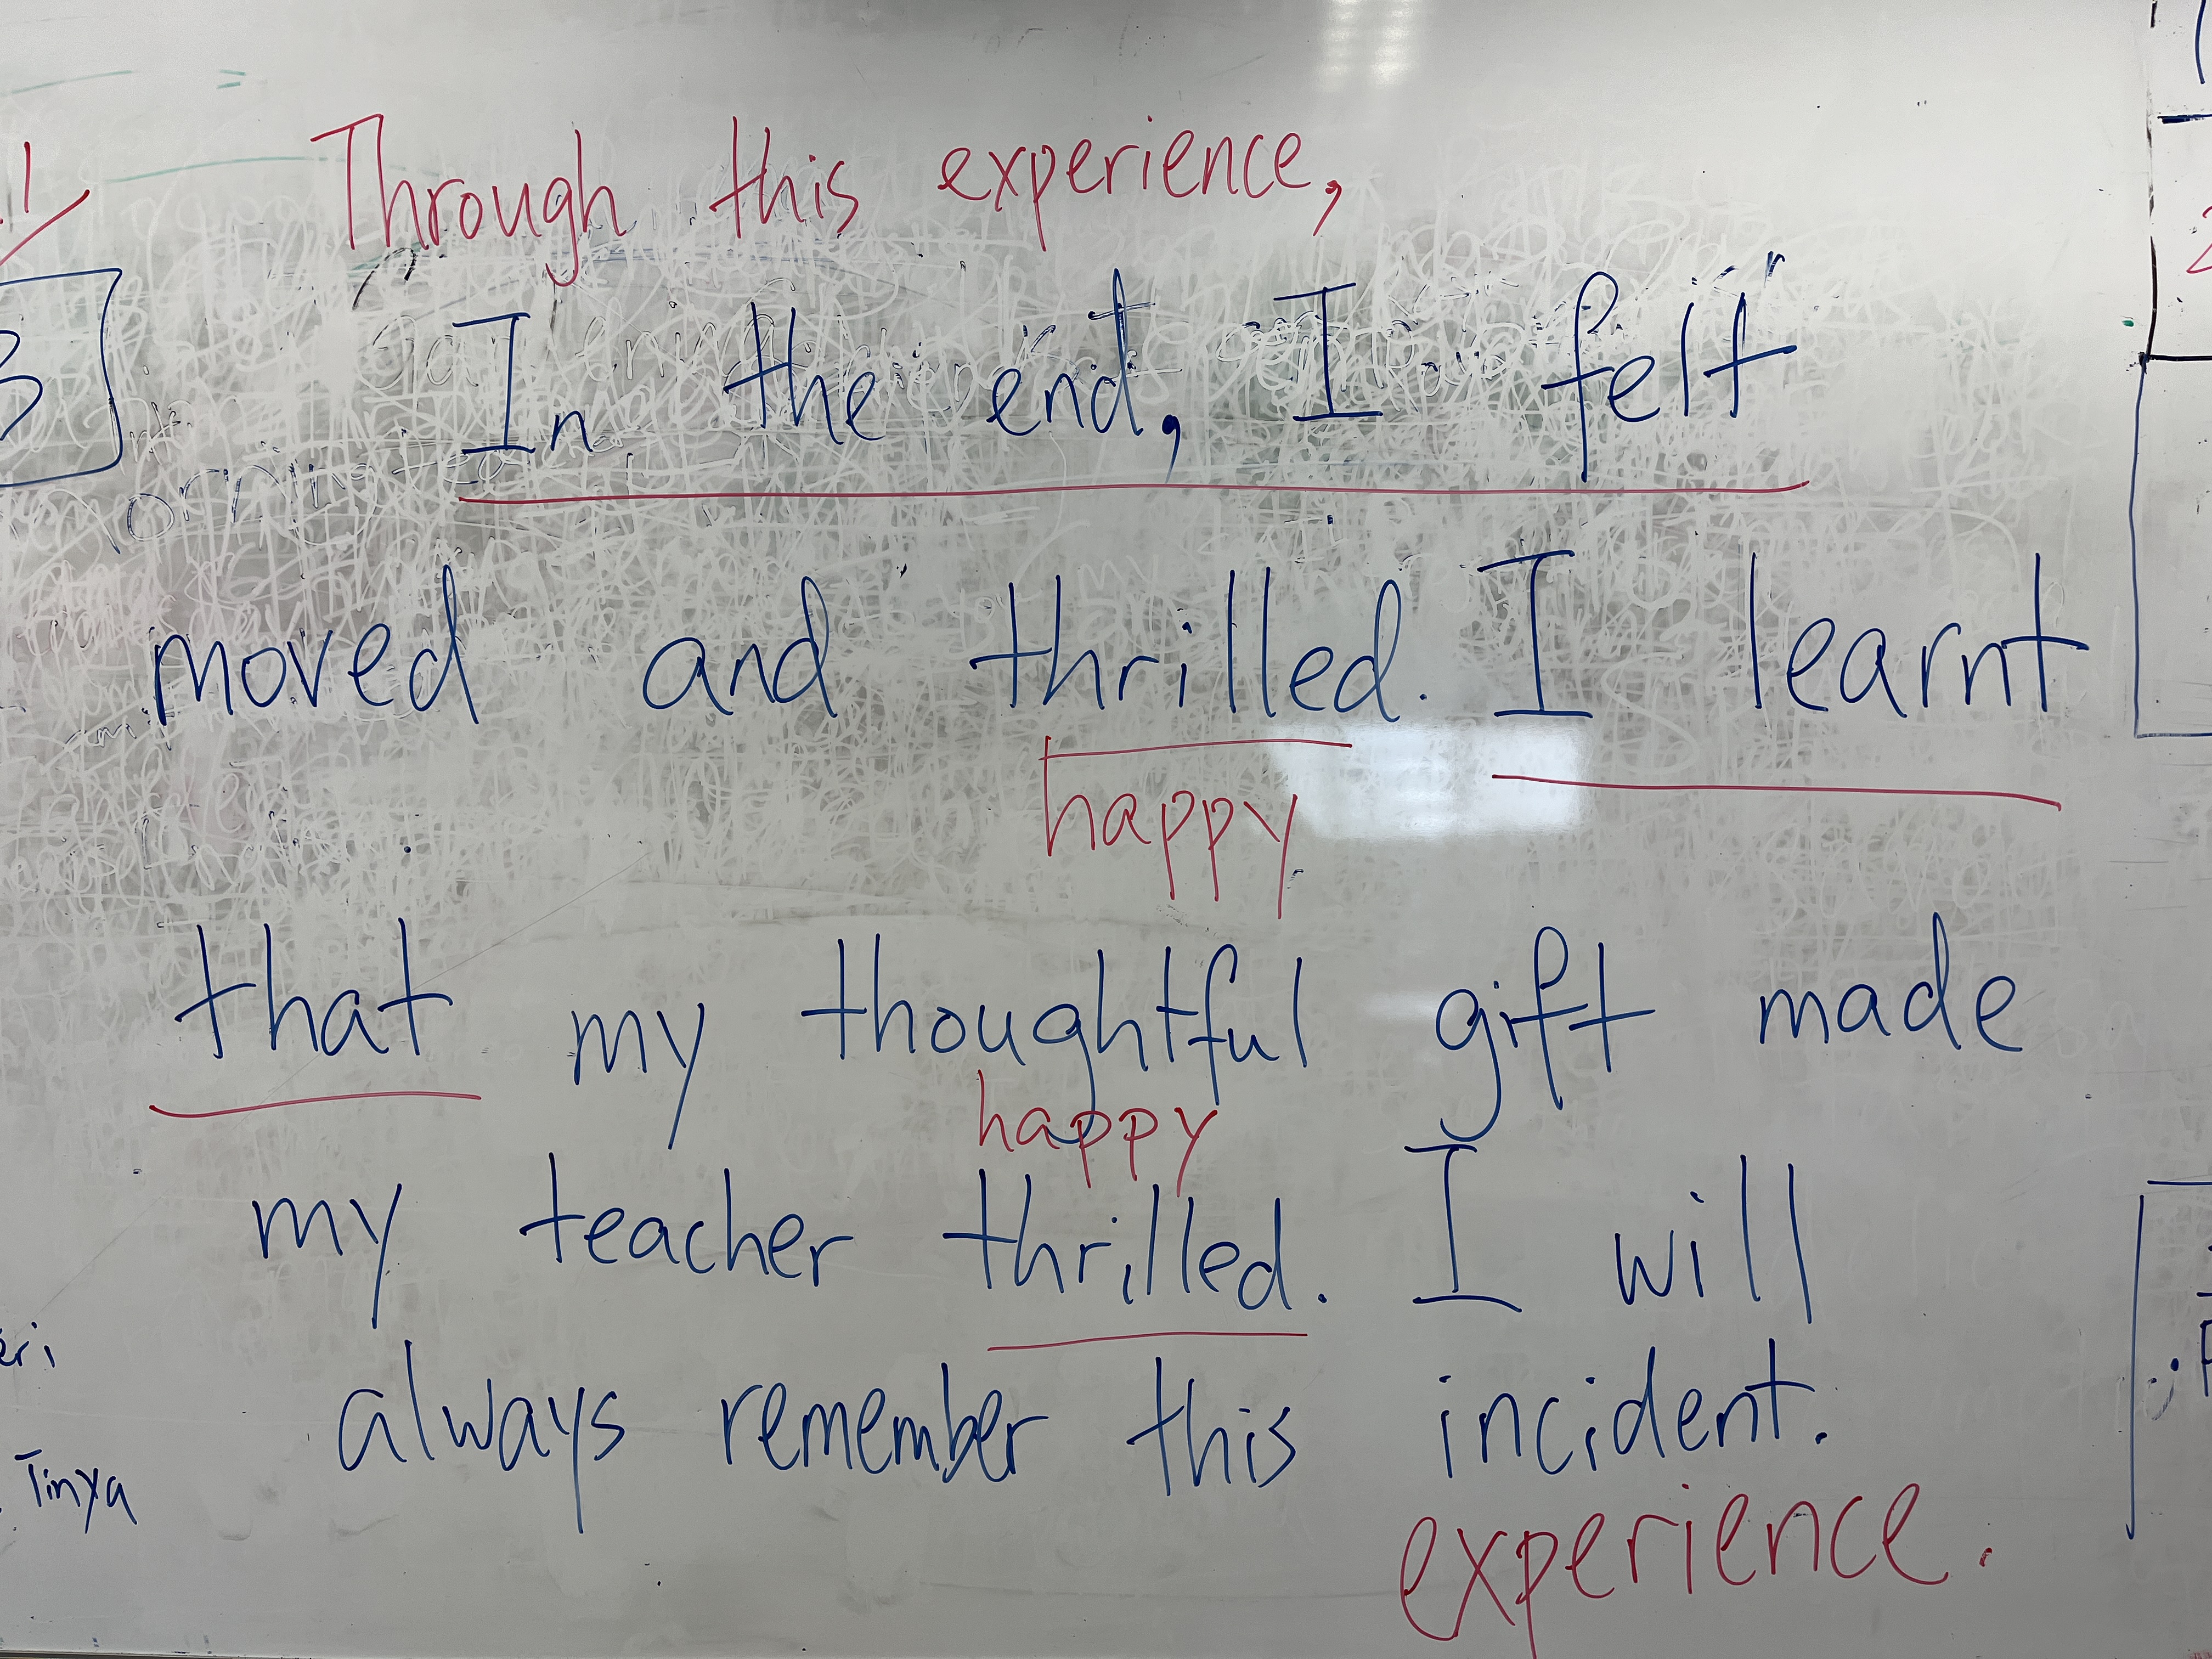 Through this experience,
In the end, I felt
moved and thrilled. I learnt
happy
that my thoughtful gift made
happy
my teacher thrilled. I will
always remember this incident.
Tinya
experience.